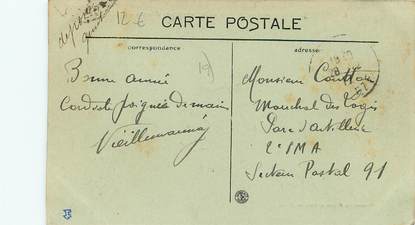 12 €
CARTE POSTALE
Correspondance
adresse
Bonne année
Cordiale poignée de main
Monsieur
Marechal des logis
Parc d'artillerie
2e PMA
Secteur Postal 91